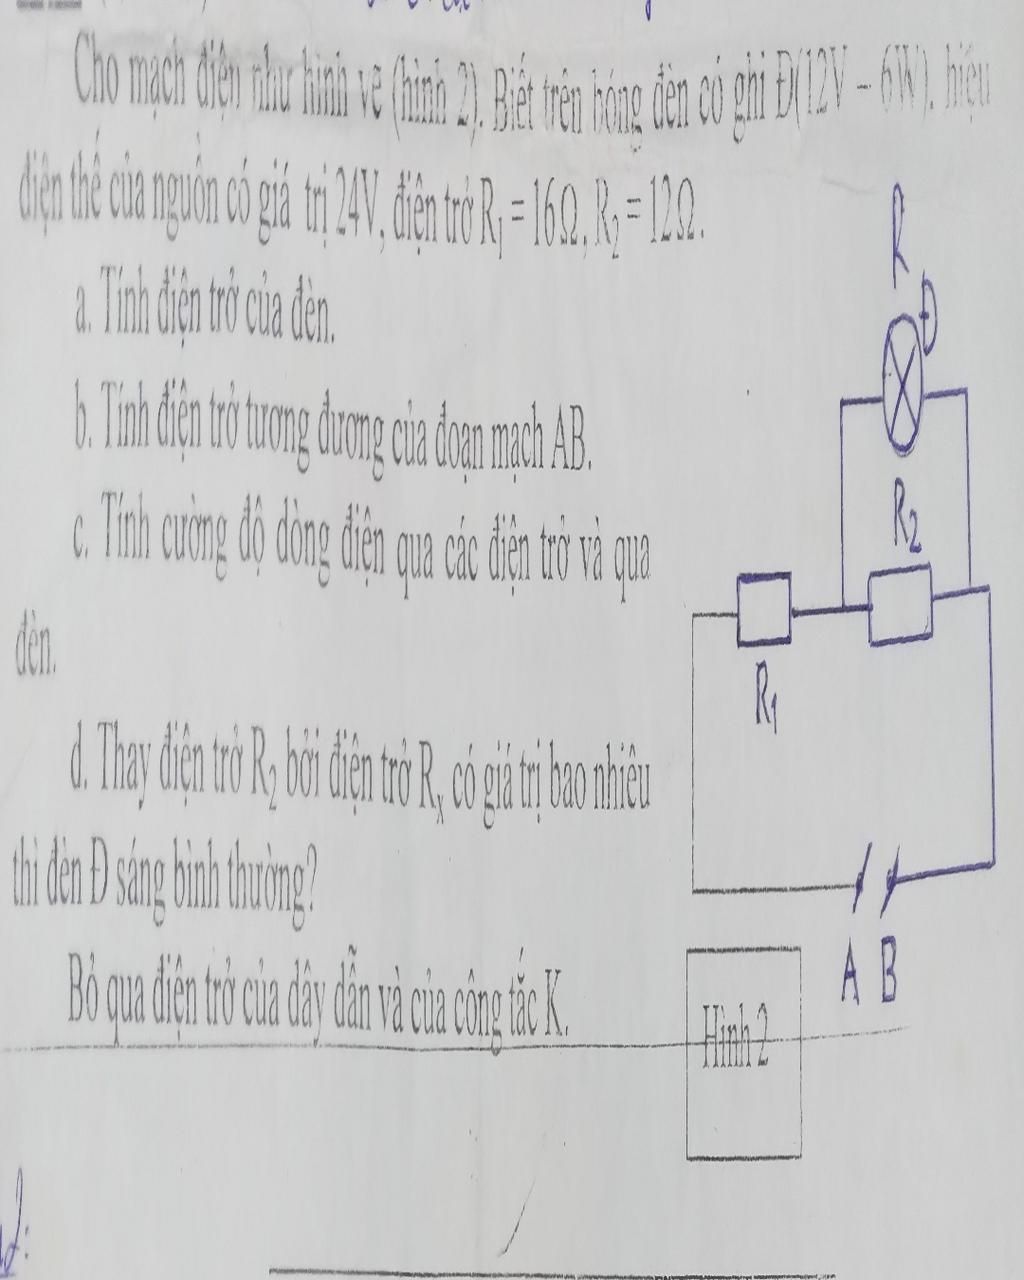 Cho mạch điện như hình vẽ (hình 2). Biết trên bóng đèn có ghi Đ(12V – 6W). hiệu
điện thế của nguồn có giá trị 24V, điện trở R₁ = 16Ω, R₂ = 12Ω.
a. Tính điện trở của đèn.
b. Tính điện trở tương đương của đoạn mạch AB.
c. Tính cường độ dòng điện qua các điện trở và qua
đèn.
d. Thay điện trở R₂ bởi điện trở Rₓ có giá trị bao nhiêu
thì đèn Đ sáng bình thường?
Bỏ qua điện trở của dây dẫn và của công tắc K.
R
Đ
R₂
R₁
A B
Hình 2